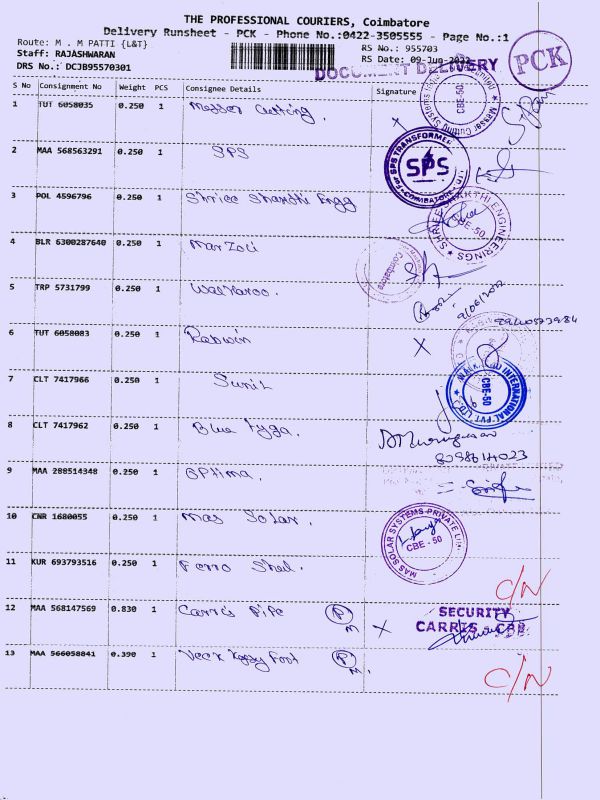 THE PROFESSIONAL COURIERS, Coimbatore
Delivery Runsheet - PCK - Phone No.:0422-3505555 - Page No.:1
Route: M . M PATTI {L&T}
RS No.: 955703
Staff: RAJASHWARAN
RS Date: 09-Jun-2022
DRS No.: DCJB95570301
DOCUMENT DELIVERY
PCK
S No Consignment No Weight PCS Consignee Details Signature
1 TUT 6058035 0.250 1 Messer Cutting.
CBE-50
2 MAA 568563291 0.250 1 SPS
For SPS TRANSFORMER
SPS
COIMBATORE
3 POL 4596796 0.250 1 Shree Shakthi Engg
SHREE SHAKTHI ENGINEERINGS
CBE-50
4 BLR 6300287640 0.250 1 Marzoli
Coimbatore
5 TRP 5731799 0.250 1 Walkaroo.
9/06/2022
6 TUT 6058083 0.250 1 Rabwin
X
7 CLT 7417966 0.250 1 Sunil
INTERNATIONAL PVT. LTD.
CBE-50
8 CLT 7417962 0.250 1 Blue Tyga.
9 MAA 288514348 0.250 1 Optima.
10 CNR 1680055 0.250 1 Mas Solar.
MAS SOLAR SYSTEMS PRIVATE
CBE - 50
11 KUR 693793516 0.250 1 Ferro
C/N
12 MAA 568147569 0.830 1 Carris Pipe P M X
SECURITY
CARRIS - CBE
13 MAA 566058841 0.390 1 P M.
C/N